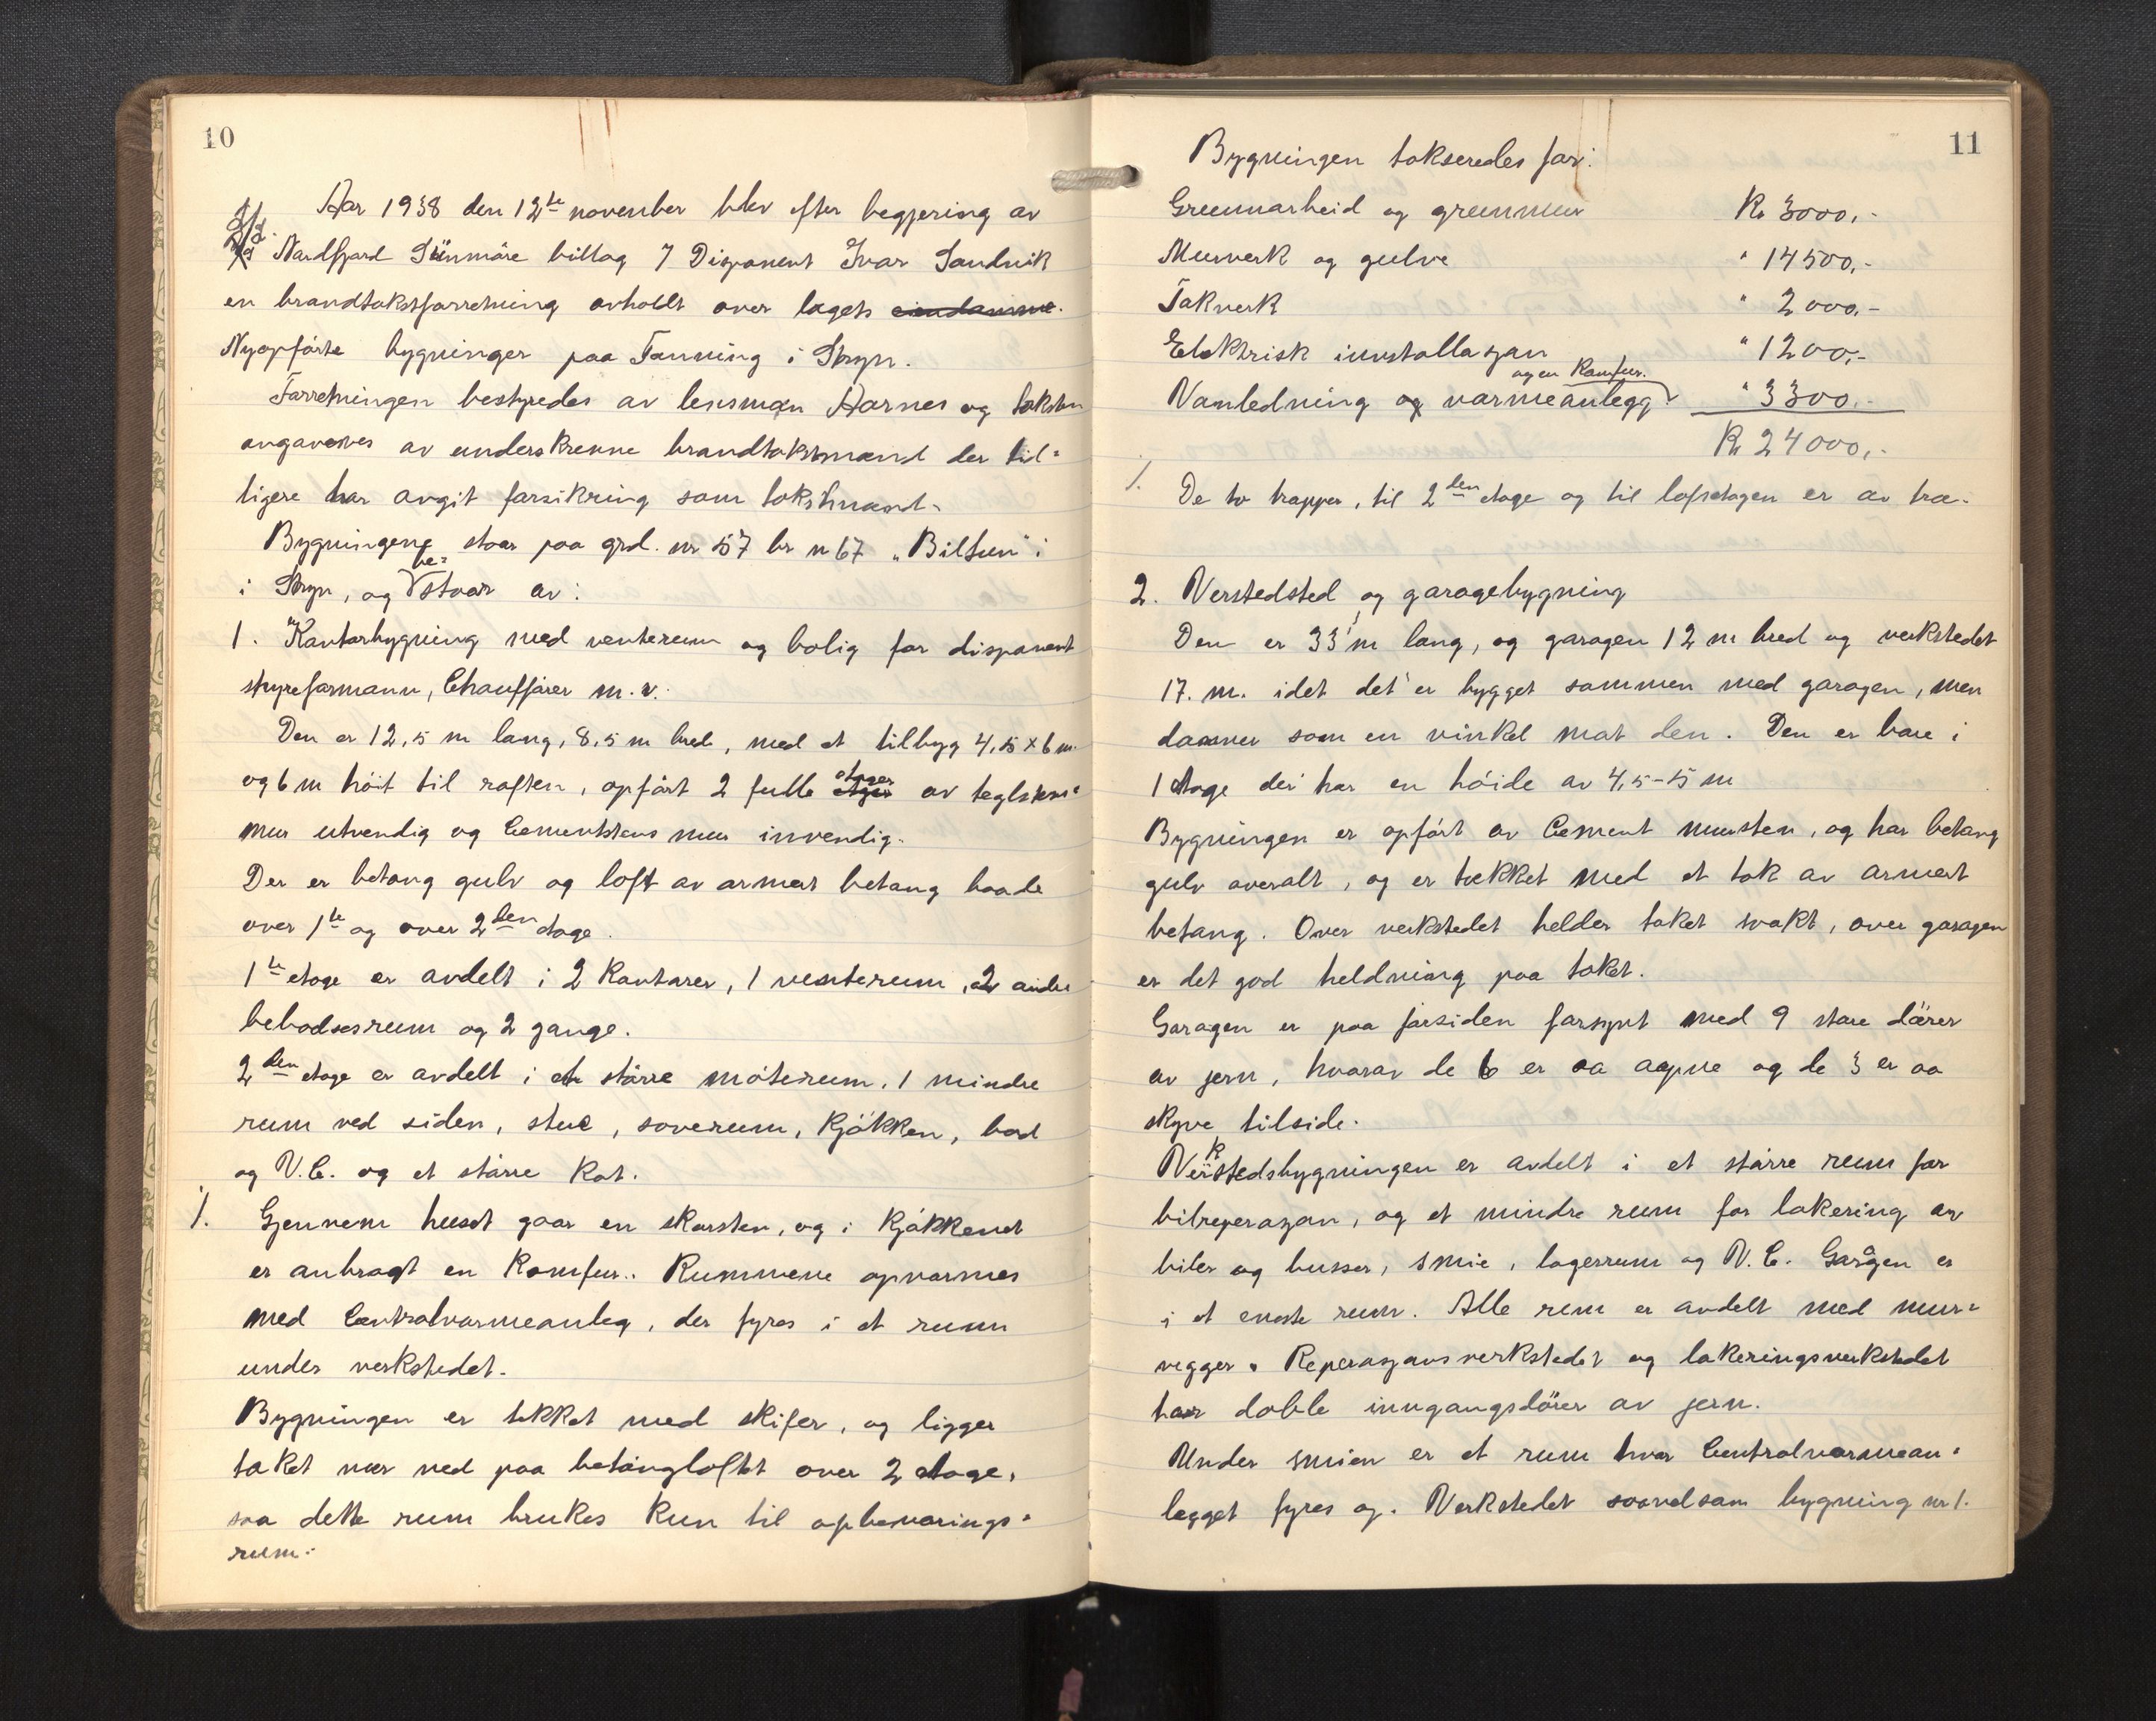 10
Aar 1938 den 12te november blev efter begjering av
A/s Nordfjord Sünmöre billag v/ Disponent Ivar Sandvik
en brandtakstforretning avholdt over lagets
Nyopförte bygninger paa Tonning i Stryn.
Forretningen bestyredes av lensman Aarnes og taksten
avgaves av underskrevne brandtakstmænd der tid=
ligere har avgit forsikring som takstmænd.
Bygningene staar paa grd. nr 57 br n 67 „Biltun" i
i Stryn, og bestaar av:
1. Kontorbygning med venterum og bolig for disponent
styreformann, Chaufförer m.v.
Den er 12,5 m lang, 8,5 m bred, med et tilbyg 4,5 x 6 m.
og 6 m höit til raften, opfört 2 fulle etager av teglsten=
mur utvendig og Cementstens mur invendig.
Der er betong gulv og loft av armert betong baade
over 1te og over 2den etage.
1te etage er avdelt i 2 Kontorer, 1 venterum, 2 andre
bekvæmmelighetsrum og 2 gange.
2den etage er avdelt i et större möterum, 1 mindre
rum ved siden, stue, soverum, Kjökken, bad
og V.C. og et större Kot.
1. Gjennem huset gaar en skorsten, og i Kjökkenet
er anbragt en Komfur.. Rummene opvarmes
med Centralvarmeanleg, der fyres i et rum
under verkstedet.
Bygningen er tekket med skifer, og ligger
taket nær ned paa betongloftet over 2 etage,
saa dette rum brukes Kun til opbevarings=
rum.
11
Bygningen takseredes for:
Grunnarbeid og grunnmur Kr 3000,-
Murverk og gulve " 14500,-
Takverk " 2000,-
Elektrisk innstallasjon " 1200,-
og en Komfur.
Vanledning og varmeanlegg " 3300.-
Kr 24000,-
1. De to trapper, til 2den etage og til loftsetagen er av træ.
2. Verstedsted og garagebygning
Den er 33 m lang, og garagen 12 m bred og verkstedet
17. m. idet det er bygget sammen med garagen, men
danner som en vinkel mot den. Den er bare i
1 etage der har en höide av 4,5-5 m
Bygningen er opfört av Cement mursten, og har betong
gulv overalt, og er tækket med et tak av armert
betong. Over verkstedet helder taket svakt, over garagen
er det god heldning paa taket.
Garagen er paa forsiden forsynt med 9 store dörer
av jern, hvorav de 6 er aa aapne og de 3 er aa
skyve tilside.
Verkstedsbygningen er avdelt i et större rum for
bilreperasjon, og et mindre rum for lakering av
biler og busser, smie, lagerrum og V.C. Garagen er
i et eneste rum. Alle rum er avdelt med mur=
vegger. Reperasjonsverkstedet og lakeringsverkstedet
har doble inngangsdörer av jern.
Under smien er et rum hvor Centralvarmean=
legget fyres og. Verkstedet saavelsom bygning nr 1.